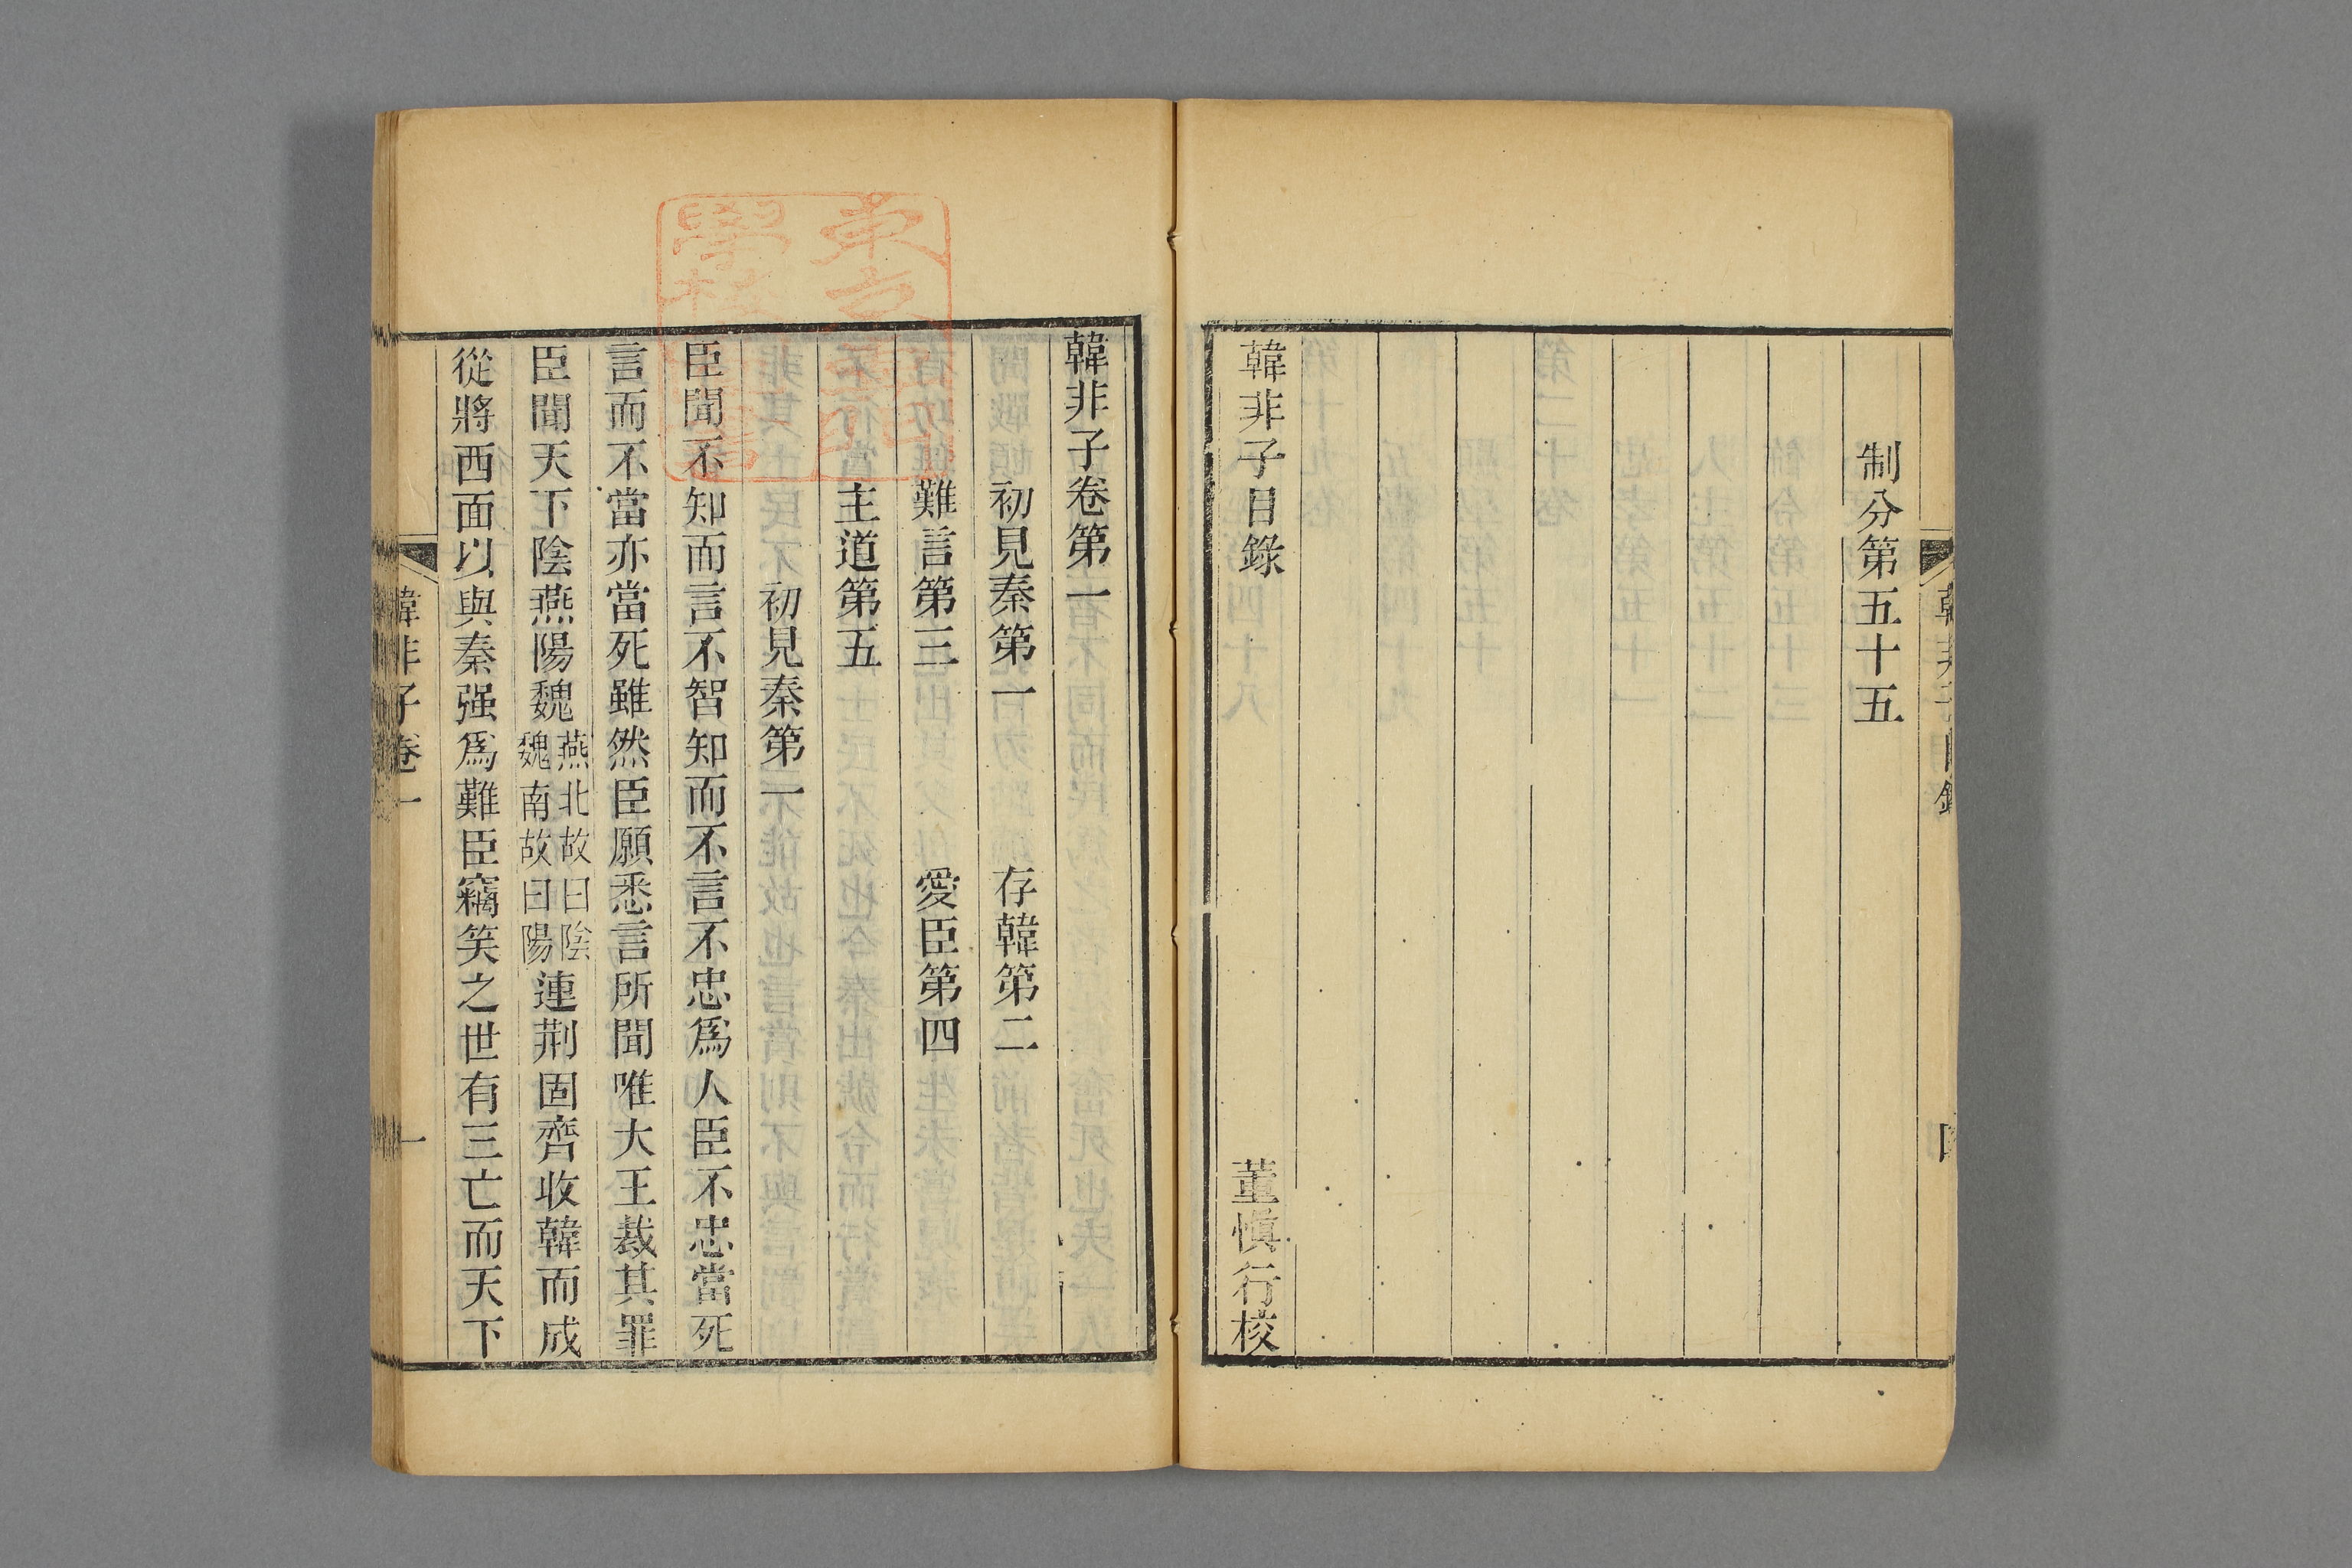 制分第五十五
韓非子目錄 董慎行校
韓非子卷第一
初見秦第一 存韓第二
難言第三 愛臣第四
主道第五
初見秦第一
臣聞不知而言不智知而不言不忠爲人臣不忠當死
言而不當亦當死雖然臣願悉言所聞唯大王裁其罪
臣聞天下陰燕陽魏燕北故曰陰魏南故曰陽連荆固齊收韓而成
從將西面以與秦强爲難臣竊笑之世有三亡而天下
韓非子卷一
一